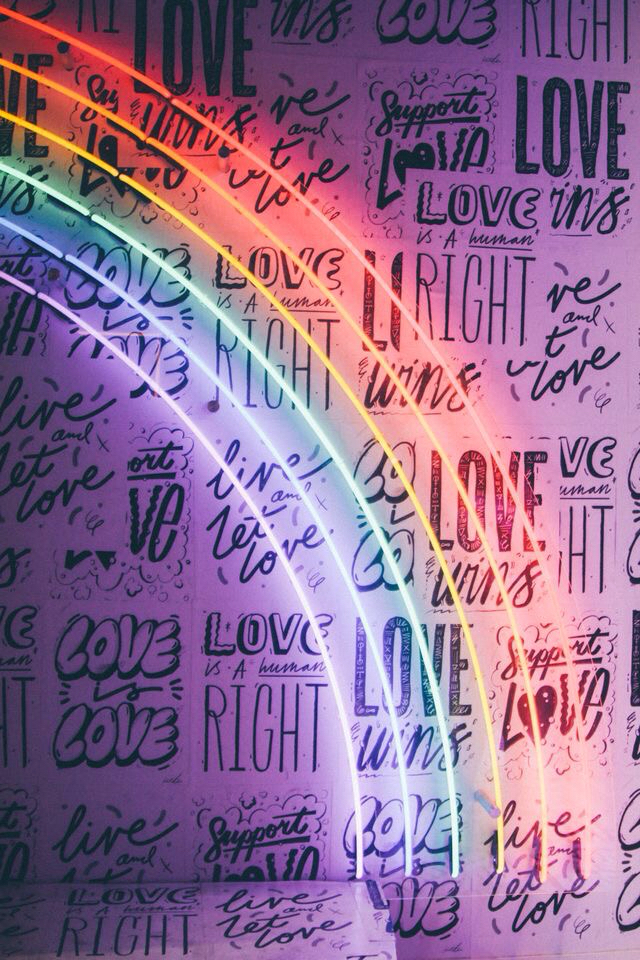 RIGHT
LOVE
LOVE
Support
wins
ve
and
t
love
Support
LOVE
LOVE
wins
LOVE
IS A human
RIGHT
LOVE
is
LOVE
LOVE
IS A human
RIGHT
wins
ve
and
t
love
live
and
let
love
ort
VE
live
and
let
love
LOVE
wins
VE
uman
HT
LOVE
is
LOVE
LOVE
IS A human
RIGHT
LOVE
wins
Support
LOVE
live
and
let
love
Support
LOVE
LOVE
is
LOVE
live
and
let
love
LOVE
IS A human
RIGHT
live
and
let
love